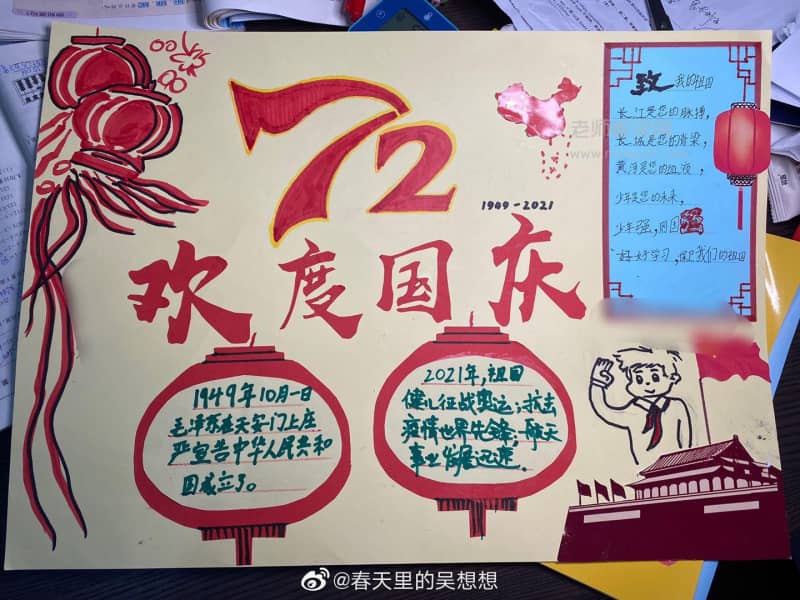 72
1949-2021
欢度国庆
致 我的祖国
长江是您的脉搏,
长城是您的脊梁,
黄河是您的血液,
少年是您的未来,
少年强,则国强
好好学习,保护我们的祖国
1949年10月一日
毛泽东在天安门上庄
严宣告中华人民共和
国成立了。
2021年,祖国
健儿征战奥运;抗击
疫情世界先锋;航天
事业发展迅速.
@春天里的吴想想